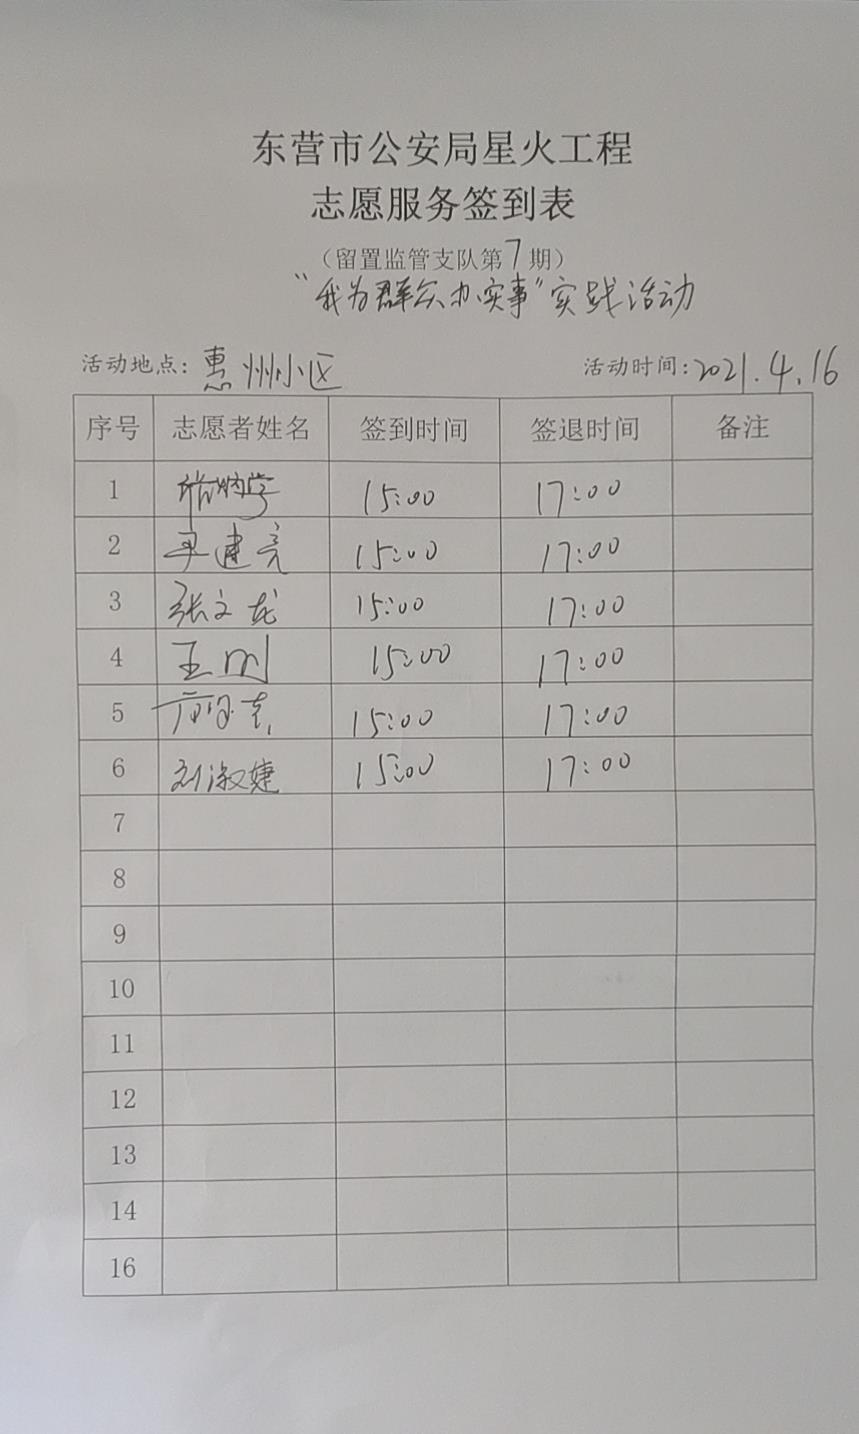 东营市公安局星火工程
志愿服务签到表
（留置监管支队第7期）
“我为群众办实事”实践活动
活动地点：惠州小区 活动时间：2021.4.16
序号 志愿者姓名 签到时间 签退时间 备注
1 15:00 17:00
2 建亮 15:00 17:00
3 张文龙 15:00 17:00
4 王刚 15:00 17:00
5 15:00 17:00
6 刘淑婕 15:00 17:00
7
8
9
10
11
12
13
14
16